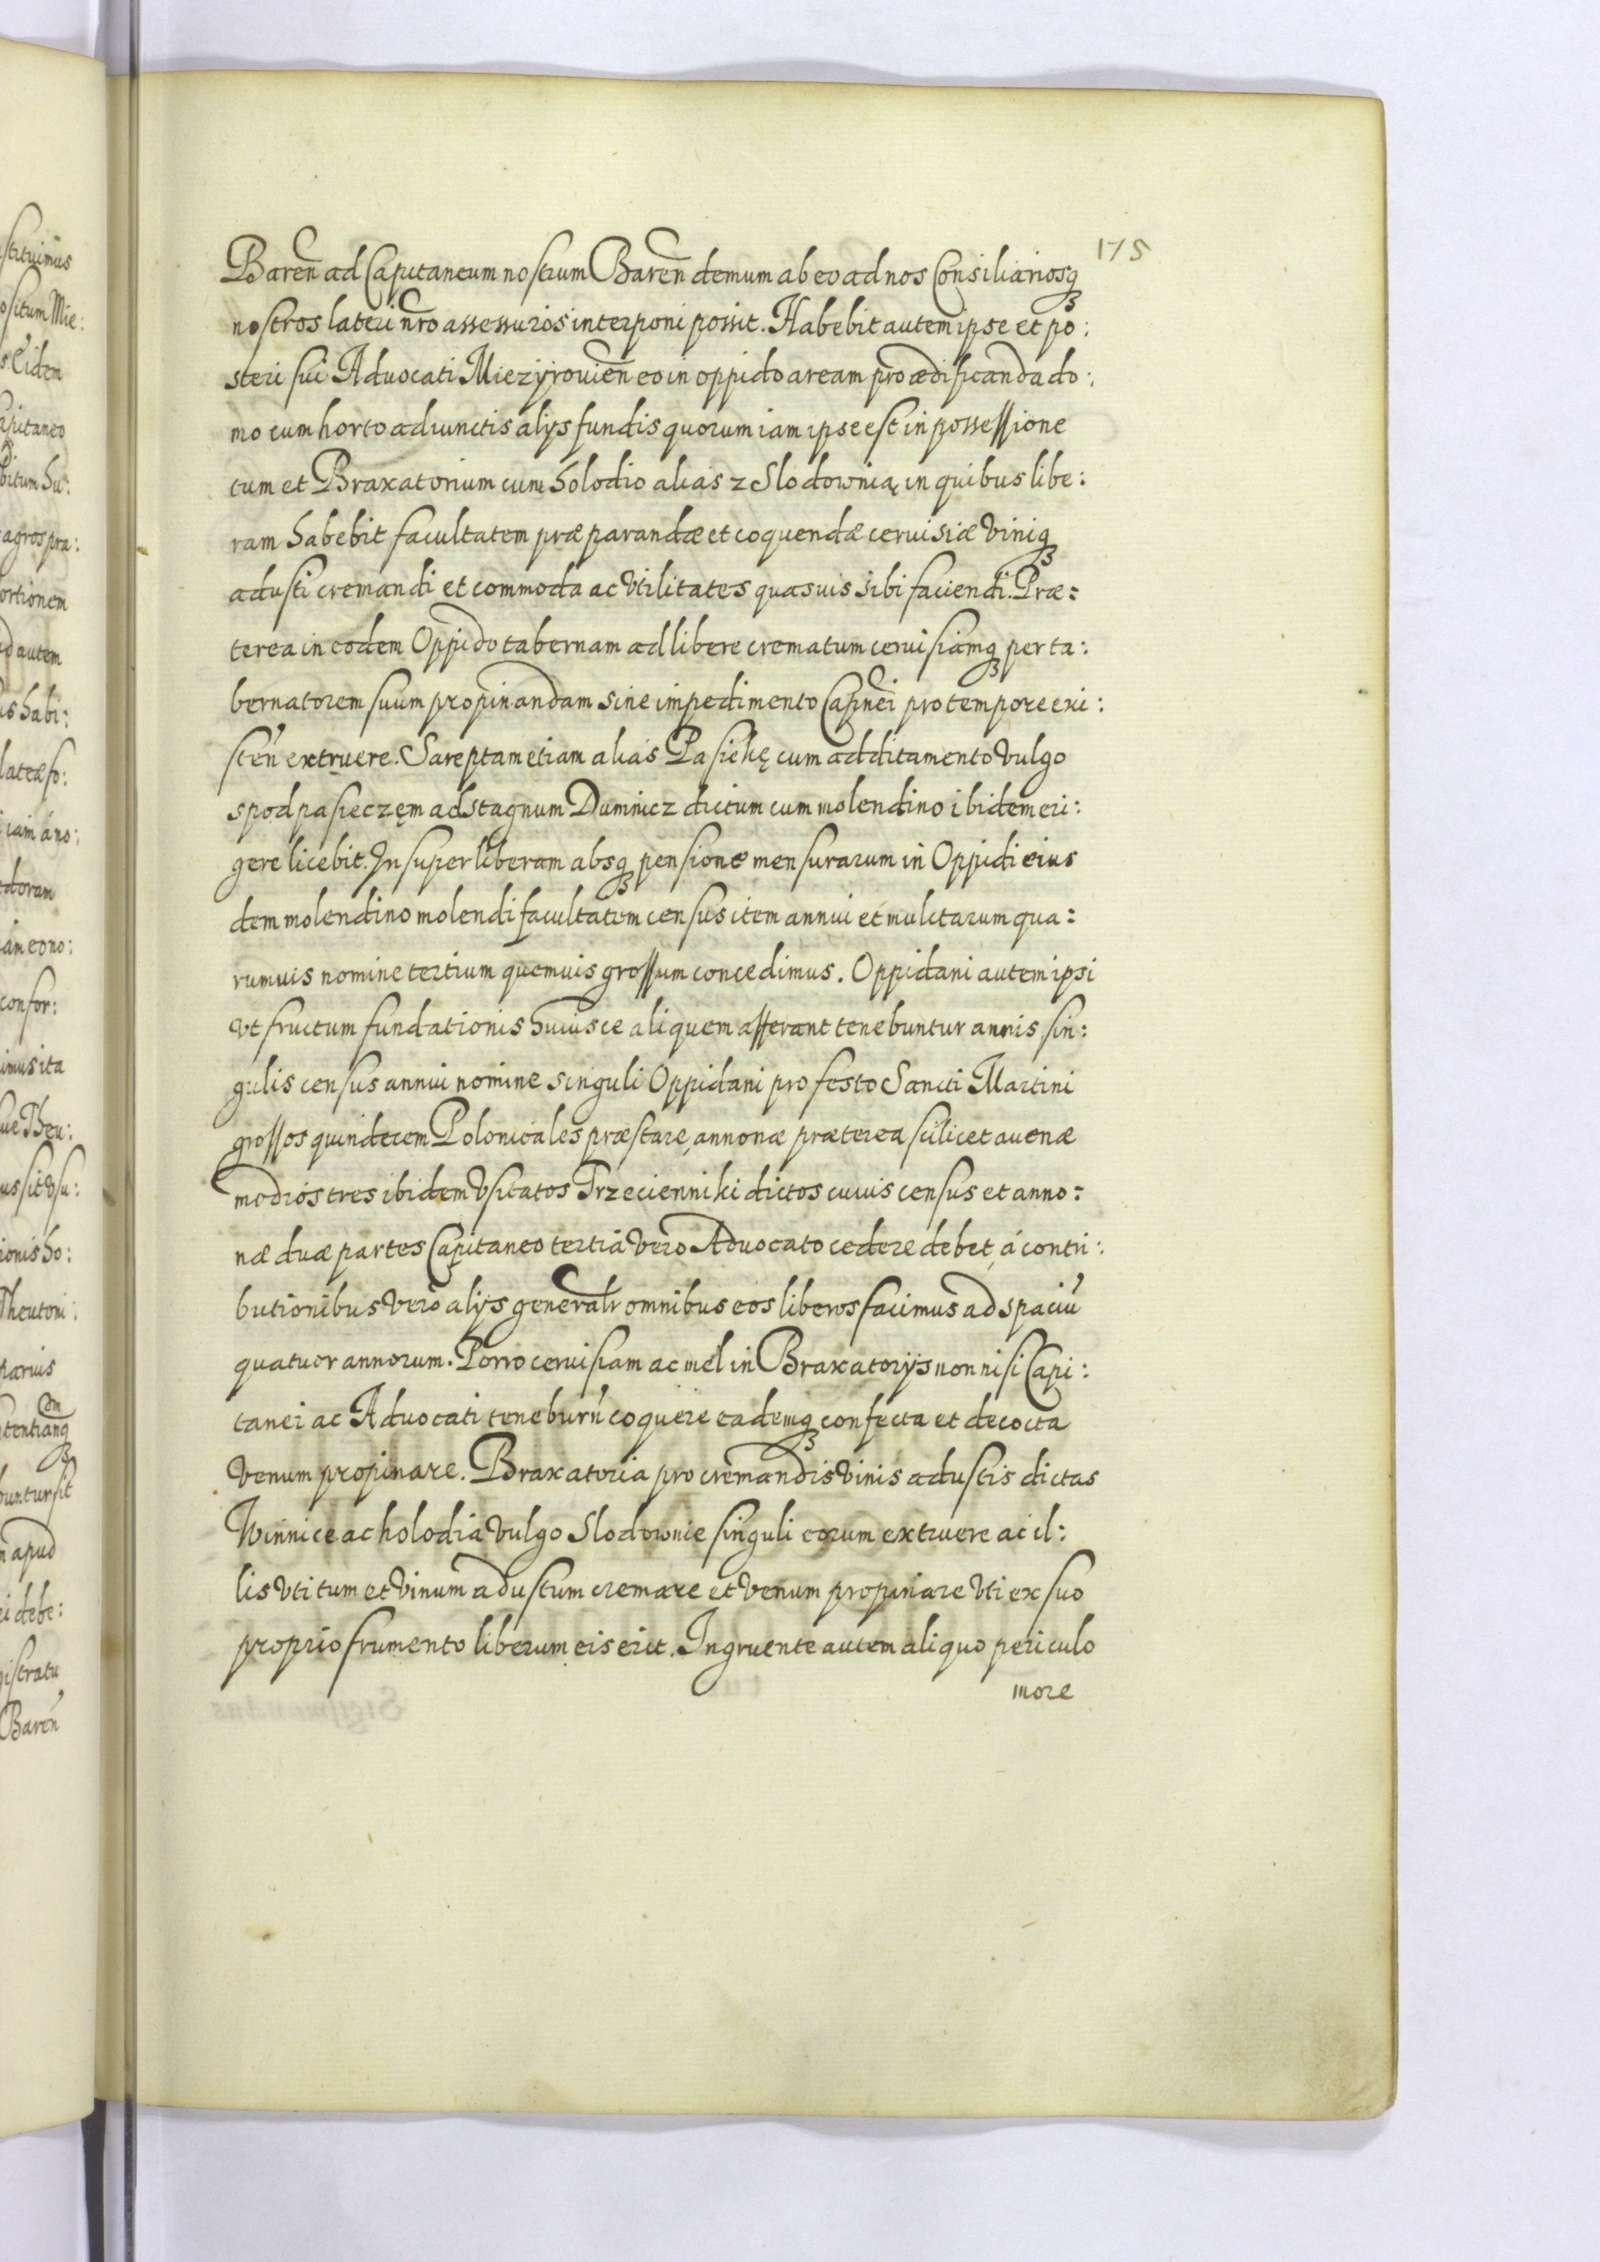 175
Bareñ ad Capitaneum nostrum Bareñ demum ab eo ad nos Consiliariosq₃
nostros lateri nr̃o assessuros interponi possit. Habebit autem ipse et po:
steri sui Advocati Miezyrovieñ eo in oppido aream pro ædificanda do:
mo cum horto adiunctis alys fundis quorum iam ipse est in possessione
tum et Braxatorium cum holodio alias z Slodownią in quibus libe:
ram habebit facultatem præparandæ et coquendæ ceruisiæ Viniq₃
adusti cremandi et commoda ac Vtilitates quasuis sibi faciendi. Præ=
terea in eodem Oppido tabernam ad libere crematum ceruisiamq₃ per ta:
bernatorem suum propinandam sine impedimento Capnei pro tempore exi:
steñ extruere. Sareptam etiam alias Pasiekę cum additamento Vulgo
spod pasieczęm ad stagnum Duminicz dictum cum molendino ibidem eri:
gere licebit. Insuper liberam absq₃ pensione mensurarum in Oppidi eius
dem molendino molendi facultatem census item annui et mulctarum qua=
rumuis nomine tertium quemuis grossum concedimus. Oppidani autem ipsi
vt fructum fundationis huiusce aliquem afferant tenebuntur annis sin:
gulis census annui nomine singuli Oppidani pro festo Sancti Martini
grossos quindecem Polonicales præstare, annonæ præterea scilicet auenæ
modios tres ibidem Vsitatos Trzecienniki dictos cuius census et anno=
næ duæ partes Capitaneo tertiã Vero Aduocato cedere debet, á contri:
butionibus Vero alys generalr omnibus eos liberos facimus ad spaciũ
quatuor annorum. Porro ceruisiam ac mel in Braxatorys non nisi Capi:
tanei ac Aduocati teneburñ coquere eademq₃ confecta et decocta
Venum propinare. Braxatoria pro cremandis Vinis adustis dictas
Winnice ac holodia Vulgo Slodownie singuli eorum extruere ac il:
lis Vti tum et Vinum adustum cremare et Venum propinare Vti ex suo
proprio frumento liberum eis erit. Ingruente autem aliquo periculo
more